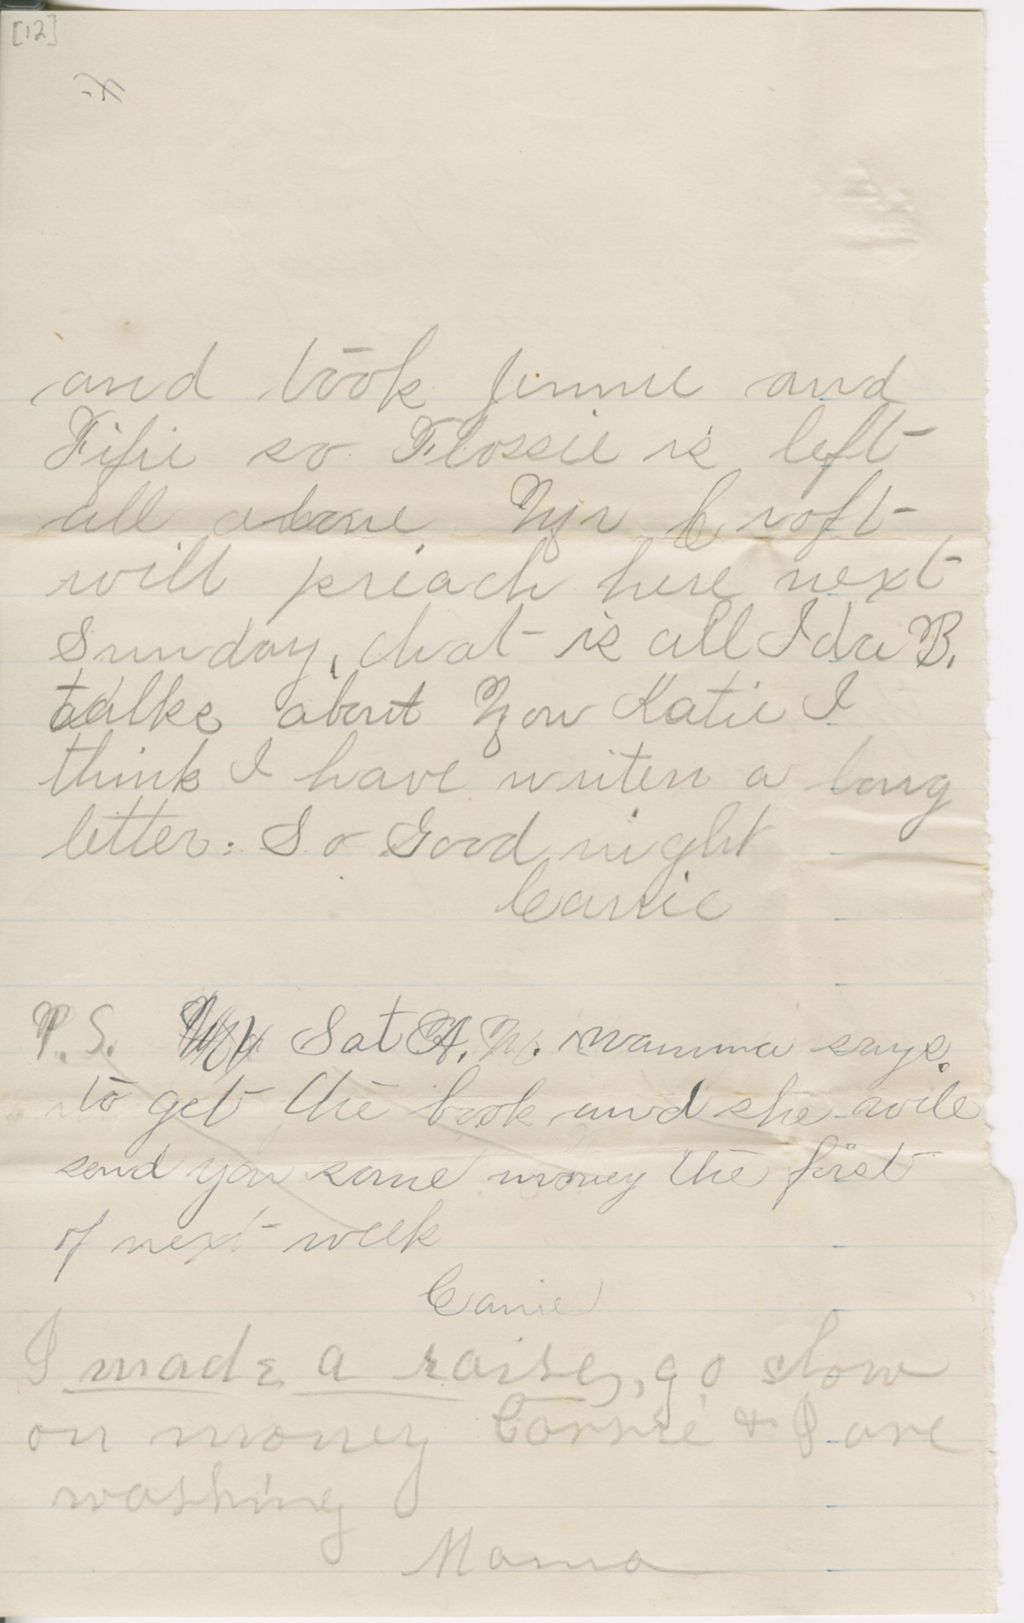 [12]
and took Jinnie and
Fifie so Flossie is left
all alone Mr Croft
will preach here next
Sunday, that is all Ida B.
talks about Now Katie I
think I have writen a long
letter. So Good night
Carrie
P.S. Sat A.M. mamma says
to get the book and she will
send you some money the first
of next week
Carrie
I made a raise, go slow
on money Carrie & I are
washing
Mama